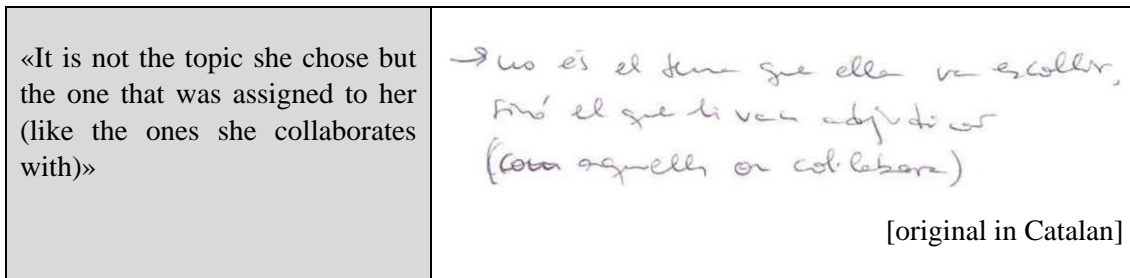 «It is not the topic she chose but
the one that was assigned to her
(like the ones she collaborates
with)»
→ no és el tema que ella va escollir,
sinó el que li van adjudicar
(com aquells on col·labora)
[original in Catalan]